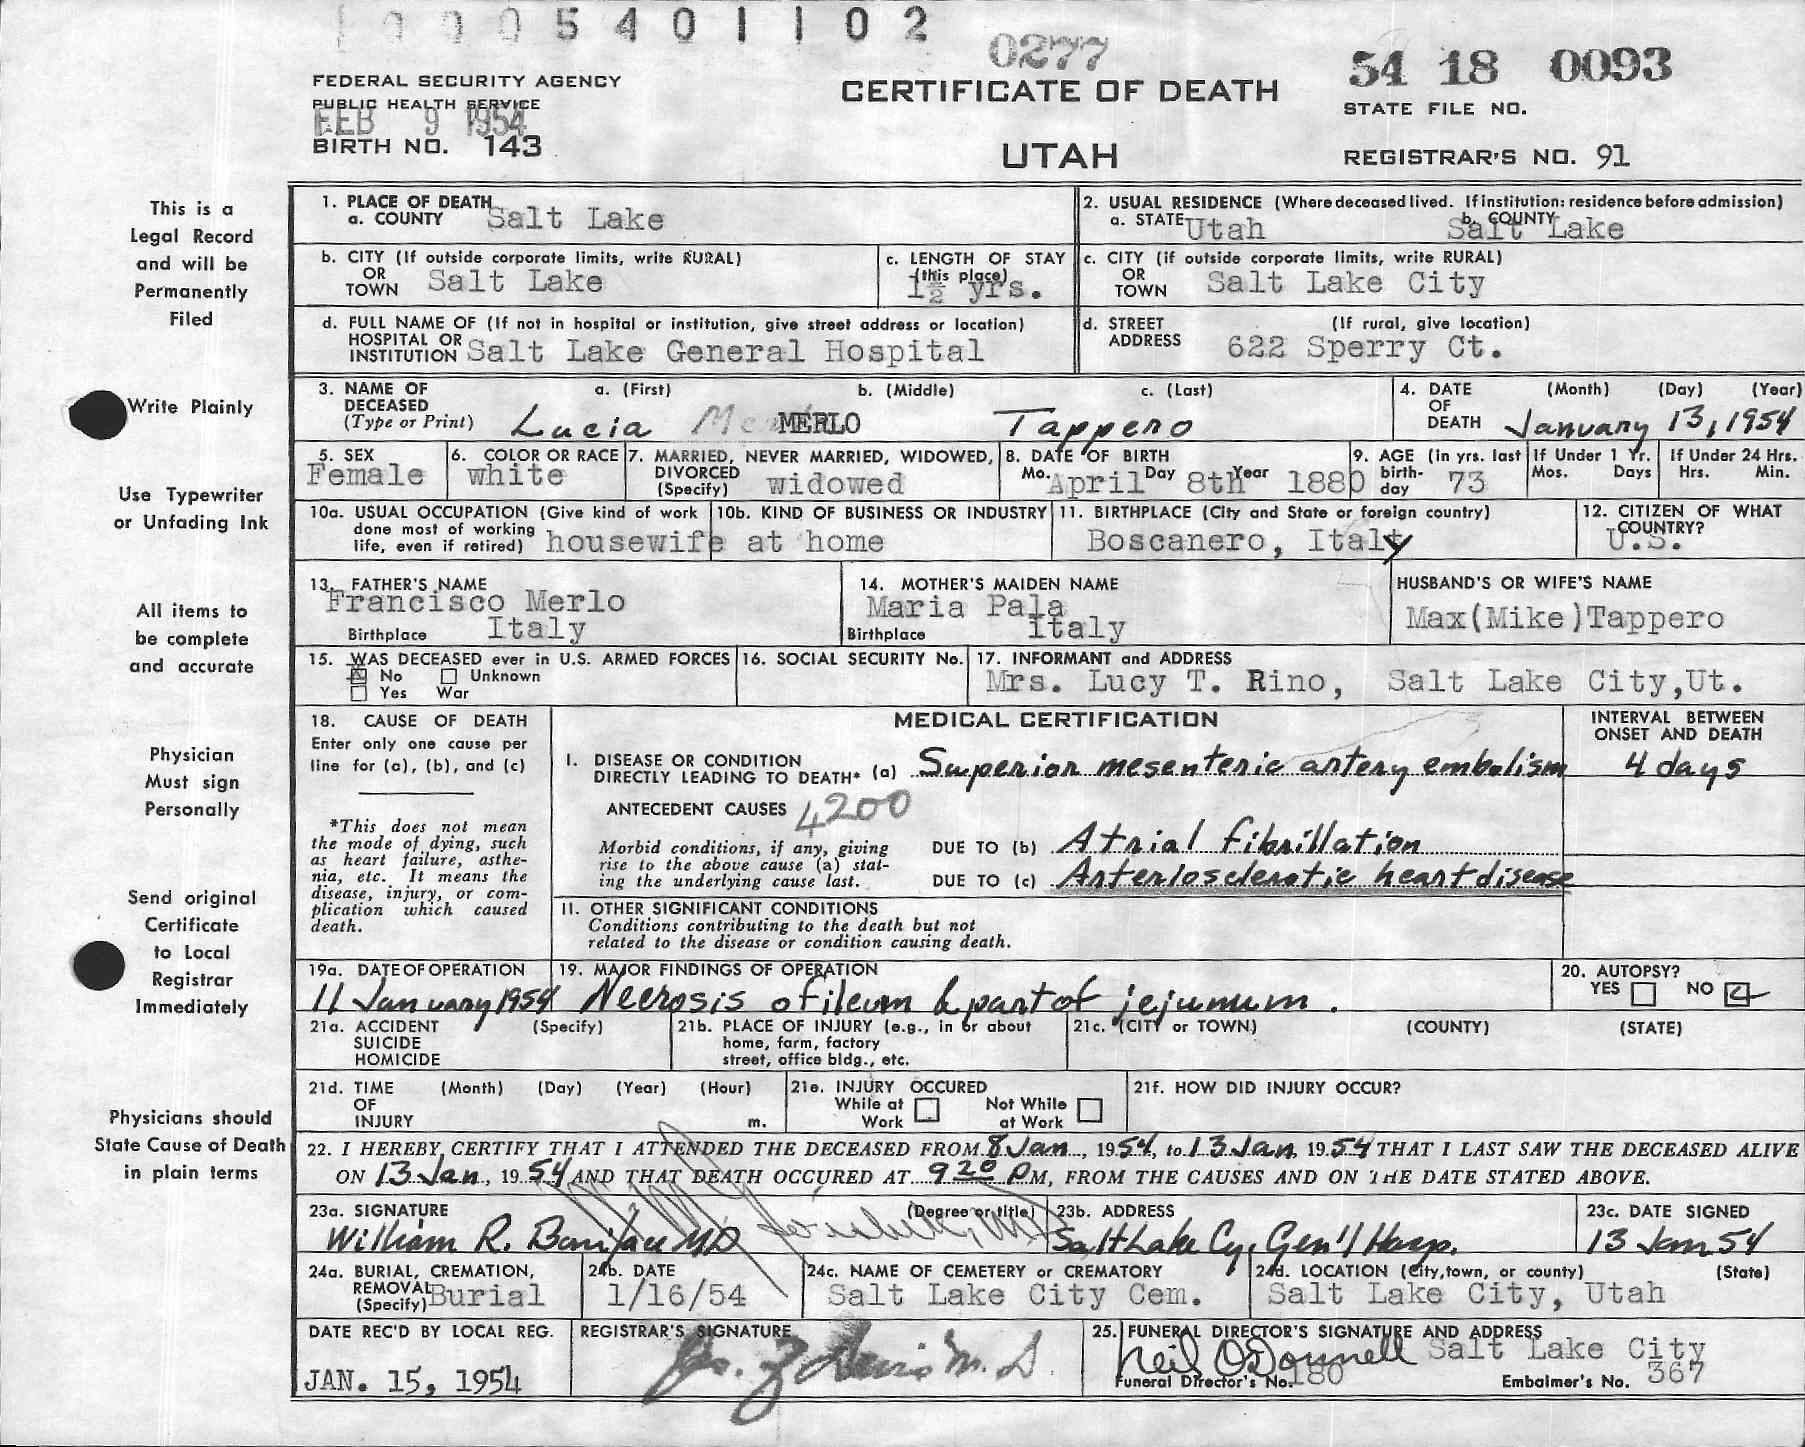 1 0 0 0 5 4 0 1 1 0 2
0277
54 18 0093
FEDERAL SECURITY AGENCY
CERTIFICATE OF DEATH
PUBLIC HEALTH SERVICE
STATE FILE NO.
FEB 9 1954
BIRTH NO. 143
UTAH
REGISTRAR'S NO. 91
This is a
Legal Record
and will be
Permanently
Filed
Write Plainly
Use Typewriter
or Unfading Ink
All items to
be complete
and accurate
Physician
Must sign
Personally
Send original
Certificate
to Local
Registrar
Immediately
Physicians should
State Cause of Death
in plain terms
1. PLACE OF DEATH
a. COUNTY Salt Lake
2. USUAL RESIDENCE (Where deceased lived. If institution: residence before admission)
a. STATE Utah b. COUNTY Salt Lake
b. CITY (If outside corporate limits, write RURAL)
OR
TOWN Salt Lake
c. LENGTH OF STAY
(this place)
1½ yrs.
c. CITY (if outside corporate limits, write RURAL)
OR
TOWN Salt Lake City
d. FULL NAME OF (If not in hospital or institution, give street address or location)
HOSPITAL OR
INSTITUTION Salt Lake General Hospital
d. STREET (If rural, give location)
ADDRESS 622 Sperry Ct.
3. NAME OF a. (First) b. (Middle) c. (Last)
DECEASED
(Type or Print) Lucia MERLO Tappero
4. DATE (Month) (Day) (Year)
OF
DEATH January 13, 1954
5. SEX
Female
6. COLOR OR RACE
white
7. MARRIED, NEVER MARRIED, WIDOWED,
DIVORCED
(Specify) widowed
8. DATE OF BIRTH
Mo. April Day 8th Year 1880
9. AGE (in yrs. last
birth-
day 73
If Under 1 Yr.
Mos. Days
If Under 24 Hrs.
Hrs. Min.
10a. USUAL OCCUPATION (Give kind of work
done most of working
life, even if retired) housewife
10b. KIND OF BUSINESS OR INDUSTRY
at home
11. BIRTHPLACE (City and State or foreign country)
Boscanero, Italy
12. CITIZEN OF WHAT
COUNTRY?
U.S.
13. FATHER'S NAME
Francisco Merlo
Birthplace Italy
14. MOTHER'S MAIDEN NAME
Maria Pala
Birthplace Italy
HUSBAND'S OR WIFE'S NAME
Max(Mike)Tappero
15. WAS DECEASED ever in U.S. ARMED FORCES
No Unknown
Yes War
16. SOCIAL SECURITY No.
17. INFORMANT and ADDRESS
Mrs. Lucy T. Rino, Salt Lake City,Ut.
18. CAUSE OF DEATH
Enter only one cause per
line for (a), (b), and (c)
*This does not mean
the mode of dying, such
as heart failure, asthe-
nia, etc. It means the
disease, injury, or com-
plication which caused
death.
MEDICAL CERTIFICATION
INTERVAL BETWEEN
ONSET AND DEATH
I. DISEASE OR CONDITION
DIRECTLY LEADING TO DEATH* (a) Superior mesenteric artery embolism 4 days
ANTECEDENT CAUSES 4200
Morbid conditions, if any, giving
rise to the above cause (a) stat-
ing the underlying cause last.
DUE TO (b) Atrial fibrillation
DUE TO (c) Arteriosclerotic heart disease
II. OTHER SIGNIFICANT CONDITIONS
Conditions contributing to the death but not
related to the disease or condition causing death.
19a. DATE OF OPERATION
11 January 1954
19. MAJOR FINDINGS OF OPERATION
Necrosis of ileum & part of jejunum.
20. AUTOPSY?
YES NO
21a. ACCIDENT (Specify)
SUICIDE
HOMICIDE
21b. PLACE OF INJURY (e.g., in or about
home, farm, factory
street, office bldg., etc.
21c. (CITY or TOWN) (COUNTY) (STATE)
21d. TIME (Month) (Day) (Year) (Hour)
OF
INJURY m.
21e. INJURY OCCURED
While at Not While
Work at Work
21f. HOW DID INJURY OCCUR?
22. I HEREBY CERTIFY THAT I ATTENDED THE DECEASED FROM 8 Jan, 1954, to 13 Jan, 1954 THAT I LAST SAW THE DECEASED ALIVE
ON 13 Jan, 1954 AND THAT DEATH OCCURED AT 9 20 PM, FROM THE CAUSES AND ON THE DATE STATED ABOVE.
23a. SIGNATURE (Degree or title)
William R. Boniface MD
23b. ADDRESS
Salt Lake Cy. Gen'l Hosp.
23c. DATE SIGNED
13 Jan 54
24a. BURIAL, CREMATION,
REMOVAL
(Specify) Burial
24b. DATE
1/16/54
24c. NAME OF CEMETERY or CREMATORY
Salt Lake City Cem.
24d. LOCATION (City, town, or county) (State)
Salt Lake City, Utah
DATE REC'D BY LOCAL REG.
JAN. 15, 1954
REGISTRAR'S SIGNATURE
M. D.
25. FUNERAL DIRECTOR'S SIGNATURE AND ADDRESS
Neil O'Donnell Salt Lake City
Funeral Director's No. 180 Embalmer's No. 367